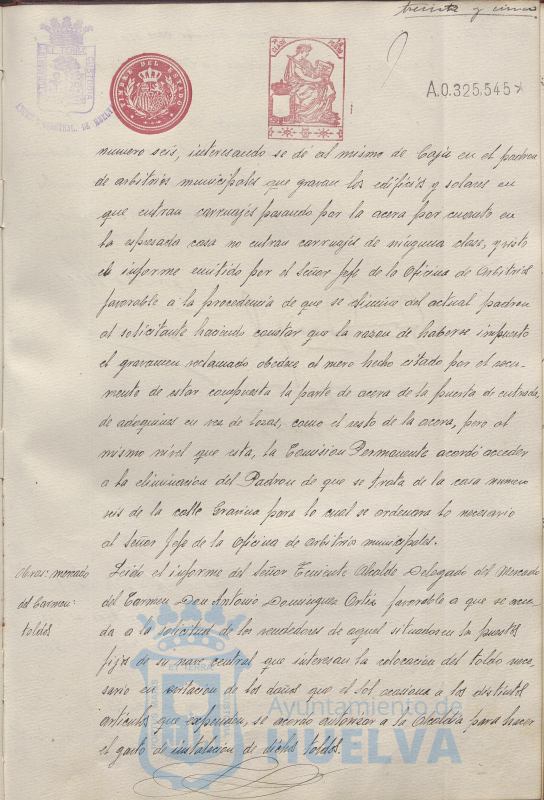 treinta y cinco
TIMBRE DEL ESTADO
A.0.325.545*
numero seis, interesando se dé al mismo de baja en el padron
de arbitrios municipales que gravan los edificios y solares en
que entran carruajes pasando por la acera por cuanto en
la espresada casa no entran carruajes de ninguna clase, y visto
el informe emitido por el Señor Jefe de la Oficina de Arbitrios
favorable a la procedencia de que se elimine del actual padron
al solicitante haciendo constar que la razon de haberse impuesto
el gravamen reclamado obedece al mero hecho citado por el recu-
rrente de estar compuesta la parte de acera de la puerta de entrada,
de adoquines en vez de lozas, como el resto de la acera, pero al
mismo nivel que esta, la Comision Permanente acordó acceder
a la eliminacion del Padron de que se trata de la casa numero
seis de la calle Gravina para lo cual se ordenara lo necesario
al Señor Jefe de la Oficina de arbitrios municipales.
Obras: mercado
del Carmen:
toldos
Leido el informe del Señor Teniente Alcalde Delegado del Mercado
del Carmen Don Antonio Dominguez Ortiz favorable a que se acce-
da a la solicitud de los vendedores de aquel situados en los puestos
fijos de su nave central que interesan la colocacion del toldo nece-
sario en evitacion de los daños que el sol ocasiona a los distintos
articulos que expenden, se acordo autorizar a la Alcaldia para hacer
el gasto de instalacion de dichos toldos.
Ayuntamiento de
HUELVA